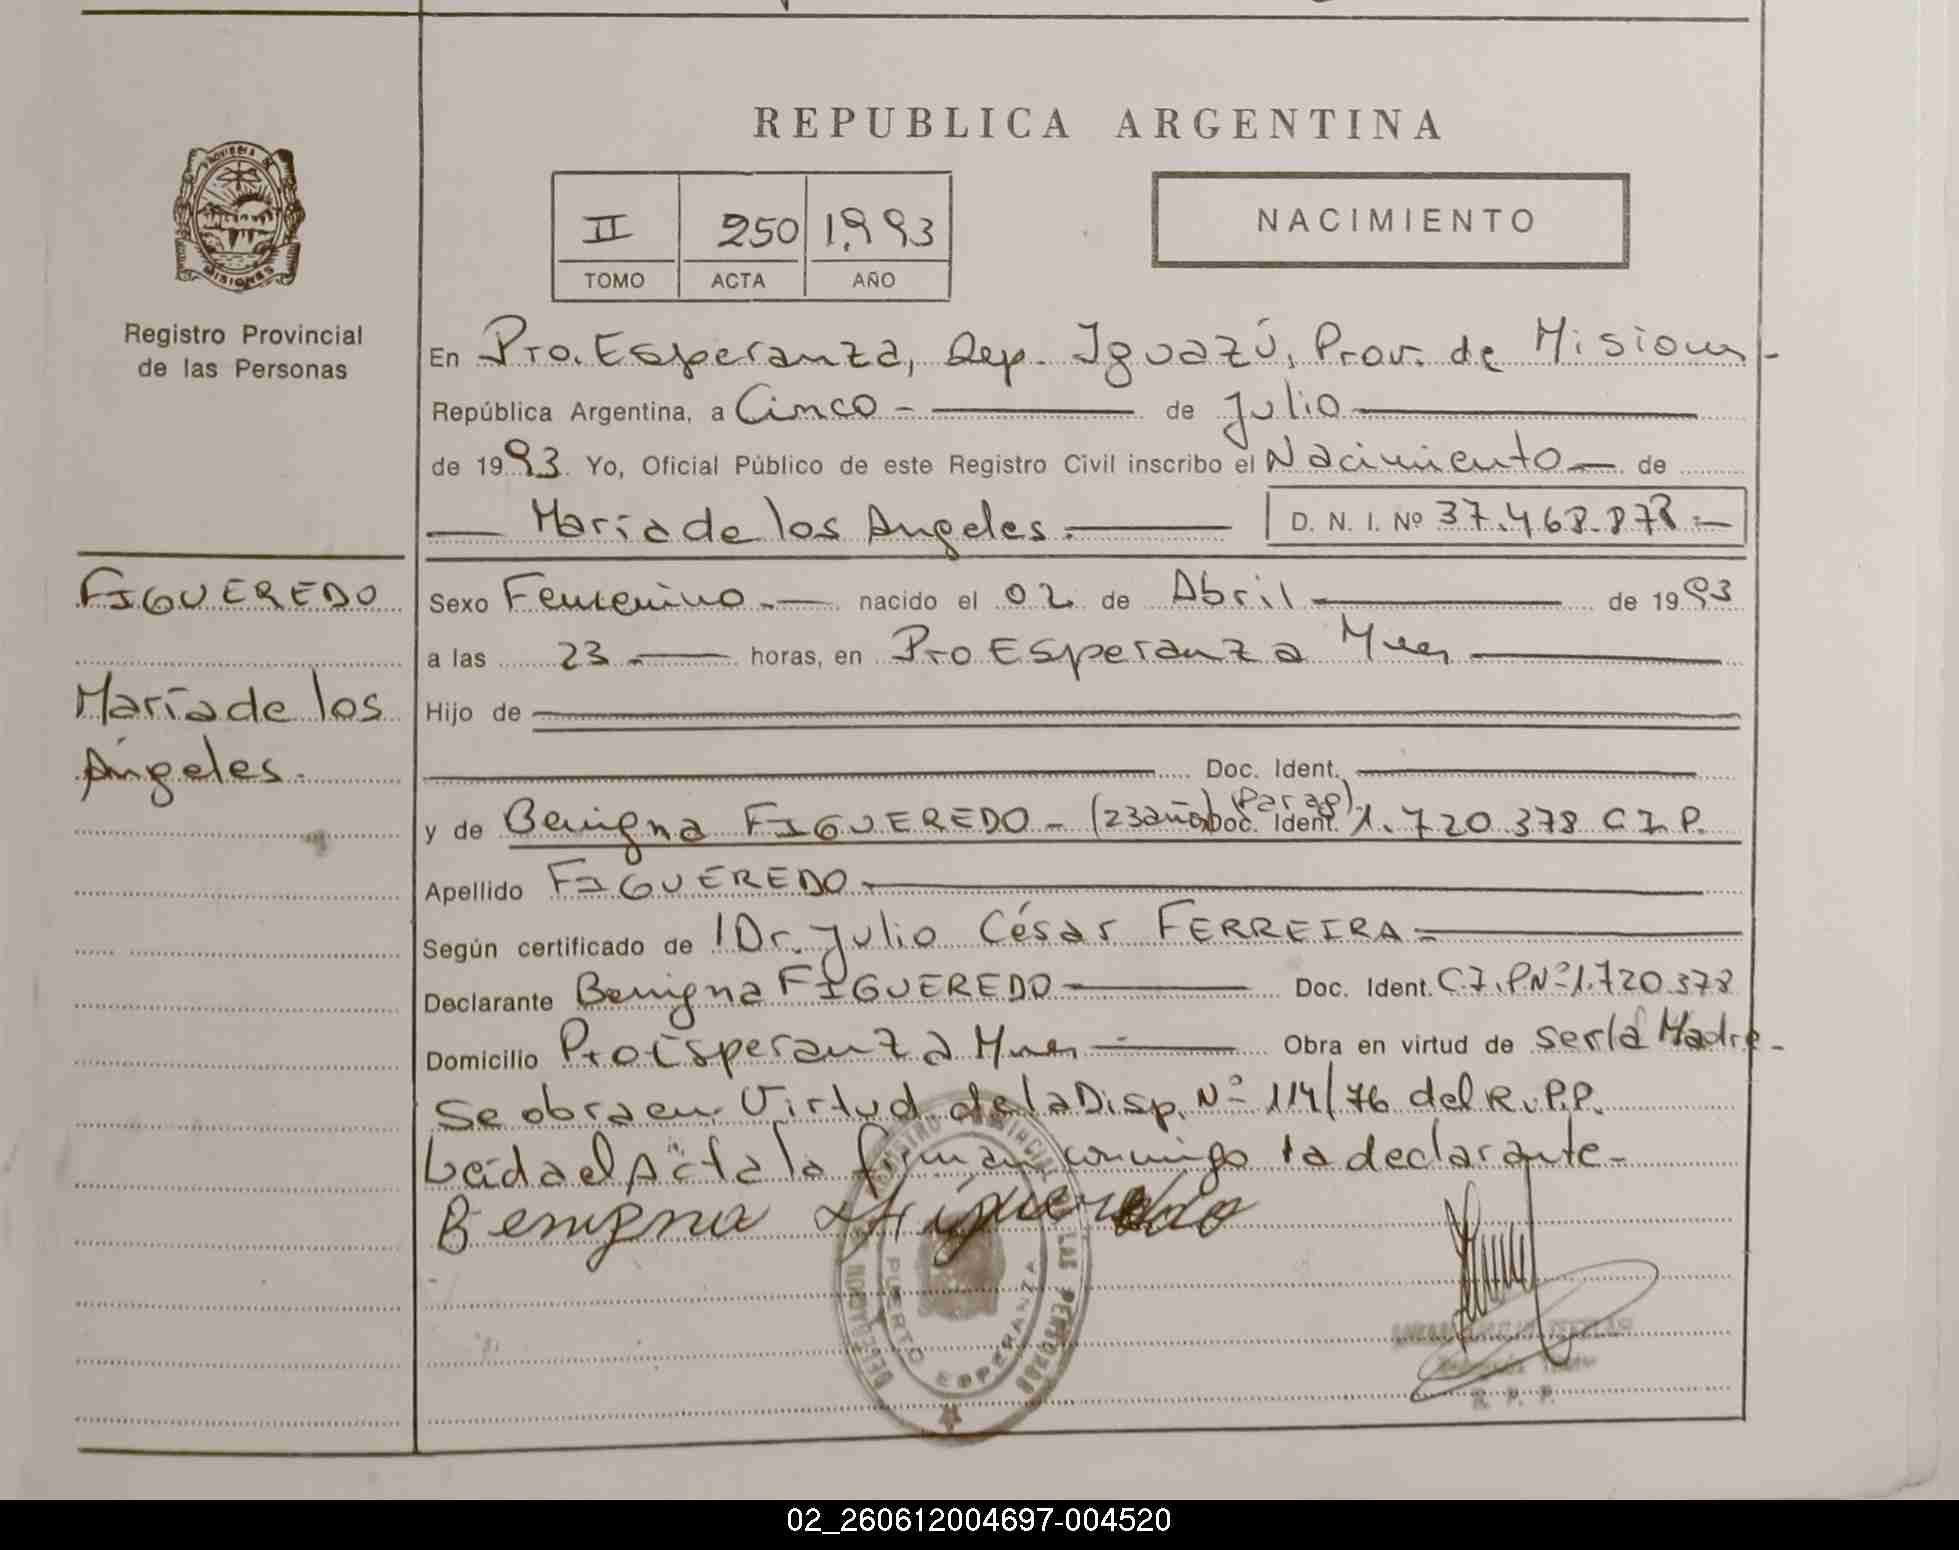 REPUBLICA ARGENTINA
PROVINCIA DE
MISIONES
Registro Provincial
de las Personas
II 250 1.993
TOMO ACTA AÑO
NACIMIENTO
En Pto. Esperanza, Dep. Iguazú, Prov. de Misiones-
República Argentina, a Cinco - de Julio
de 1993. Yo, Oficial Público de este Registro Civil inscribo el Nacimiento de
María de los Angeles.- D. N. I. Nº 37.468.878.-
FIGUEREDO
María de los
Ángeles.
Sexo Femenino.- nacido el 02 de Abril de 1993
a las 23.- horas, en Pto Esperanza Mnes
Hijo de
Doc. Ident.
y de Benigna FIGUEREDO - (23 años) (Parag). Doc. Ident. 1.720.378 C.I.P.
Apellido FIGUEREDO.-
Según certificado de Dr. Julio César FERREIRA.-
Declarante Benigna FIGUEREDO Doc. Ident. C.I.P Nº 1.720.378
Domicilio Pto Esperanza Mnes Obra en virtud de ser la Madre.-
Se obra en Virtud de la Disp. Nº 114/76 del R.P.P.
Leida el Acta la firman conmigo la declarante-
Benigna Figueredo
REGISTRO PROVINCIAL DE LAS PERSONAS
DELEGACION
PUERTO ESPERANZA
R. P. P.
02_260612004697-004520